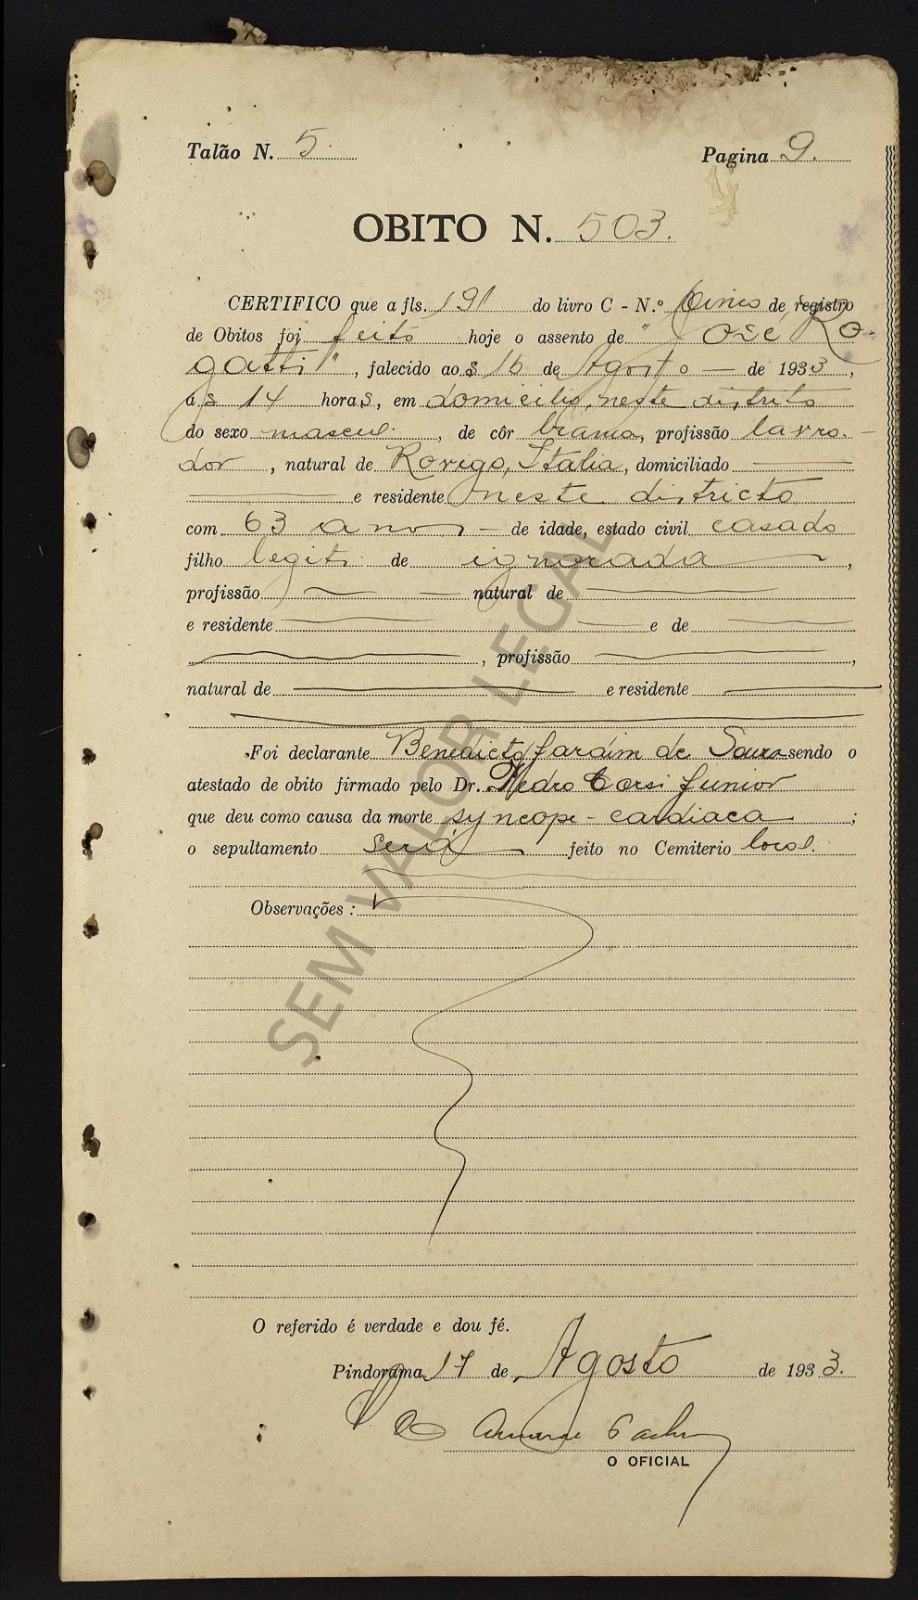 Talão N. 5. Pagina 9.
OBITO N. 503.
CERTIFICO que a fls. 191 do livro C - N.º Cinco de registro
de Obitos foi feito hoje o assento de "José Ro-
gatti", falecido aos 16 de Agosto — de 1933,
ás 14 horas, em domicilio, neste distrito
do sexo mascul. , de côr branca, profissão lavra-
dor , natural de Rovigo, Italia, domiciliado
e residente neste districto
com 63 annos — de idade, estado civil casado
filho legit. de ignorada ,
profissão — natural de
e residente — e de
, profissão ,
natural de e residente
Foi declarante Benedicto Jardim de Souza sendo o
atestado de obito firmado pelo Dr. Pedro Corsi Junior
que deu como causa da morte syncope - cardiaca ;
o sepultamento será feito no Cemiterio local.
Observações :
SEM VALOR LEGAL
O referido é verdade e dou fé.
Pindorama, 17 de Agosto de 1933.
O OFICIAL